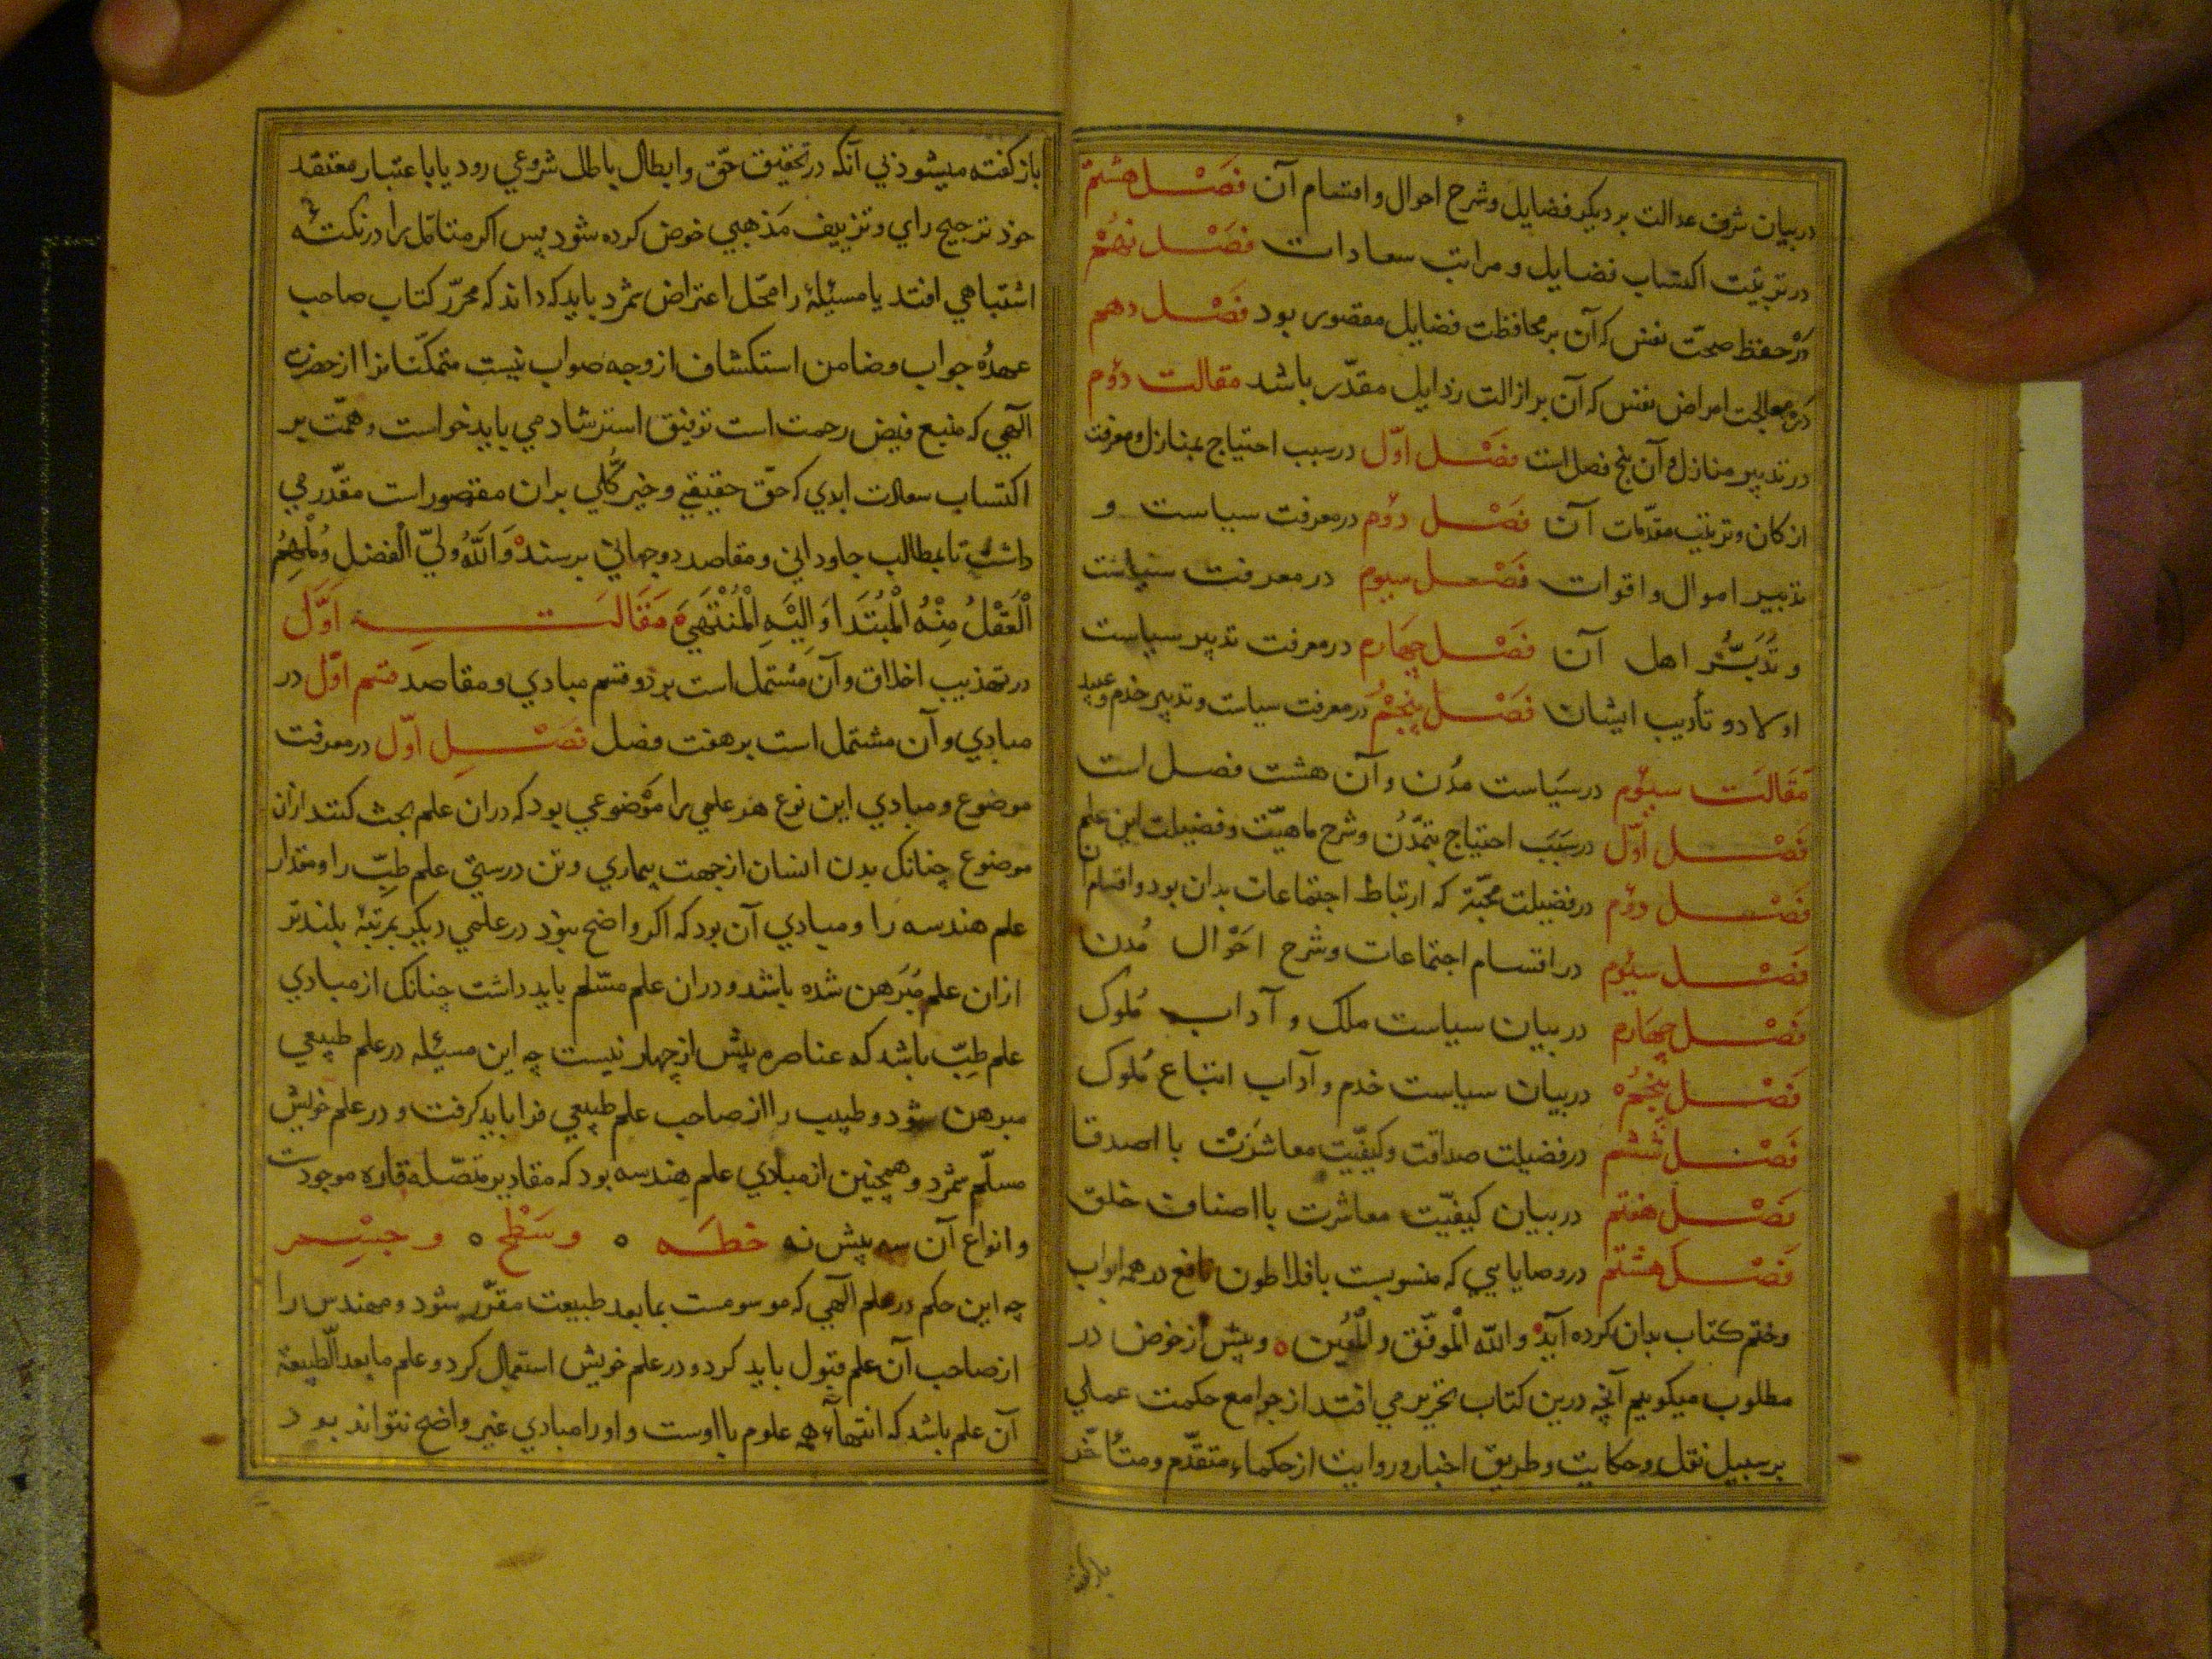 در بیان شرف عدالت بر دیکر فضایل و شرح احوال و اقسام آن فَصْـل هشتم
در ترتیب اکتساب فضایل و مراتب سعادات فصْـل نهُمْ
در حفظ صحّت نفس که آن بر محافظت فضایل مقصور بود فَصْـل دهم
در معالجت امراض نفس که آن بر ازالت رذایل مقدّر باشد مقالت دوُم
در تدبیر منازل و آن پنج فصل است فصْـل اوّل در سبب احتیاج بمنازل و معرفت
ارکان و ترتیب مقدّمات آن فصْـل دوُم در معرفت سیاست و
تدبیر اموال و اقوات فصْـل سیوم در معرفت سیاست
و تدبیر اهل آن فصْـل چهارم در معرفت تدبیر سیاست
اولاد و تأدیب ایشان فصْـل پنجُمْ در معرفت سیاست و تدبیر خدم و عبید
مَقَالَت سیوُم در سیَاست مدُن و آن هشت فصل است
فَصْـل اوّل در سبَبَ احتیاج بتمدّن و شرح ماهیّت و فضیلت این علم
فَصْـل دوُم در فضیلت محبّة که ارتباط اجتماعات بدان بود و اقسام آن
فَصْـل سیوُم در اقسام اجتماعات و شرح احْوال مُدن
فَصْـل چهَارم در بیان سیاست ملک و آداب مُلوک
فَصْـل پنجُمْ در بیان سیاست خدم و آداب اتباع مُلوک
فَصْـل ششم در فضیلت صداقت و کیفیّت معاشرَت با اصدقا
فَصْـل هفتم در بیان کیفیّت معاشرت با اصناف خلق
فَصْـل هشتم در وصایایی که منسوبست بافلاطون نافع در همه ابواب
و ختم کتاب بدان کرده آید والله الْموفّق والْمُعین ه و پیش از خوض در
مطلوب میکوییم آنچه درین کتاب تحریر می افتد از جوامع حکمت عملی
بر سبیل نقل و حکایت و طریق اخبار و روایت از حکماء متقدّم و متأخّر
باز کفته میشود بی آنکه در تحقیق حّق و ابطال باطل شروعي رود یا باعتبار معتقد
خود ترجیح راي و تزییف مَذهبي خوض کرده شود پس اکر متامّل را در نکتهٔ
اشتباهي افتد یا مسئلهٔ را محّل اعتراض شمرد باید که داند که محرّر کتاب صاحب
عهدُه جواب و ضامن استکشاف از وجه صواب نیست متمکّنانرا از حضرت
آلهي که منبع فیض رحمت است توفیق استرشاد مي باید خواست و همّت بر
اکتساب سعادت ابدي که حّق حقیقي و خیر کُلّي بدان مقصور است مقدّر مي
داشت تا بمطالب جاوداني و مقاصد دوجهاني برسند وَاللهُ وليّ الْفضل وَمُلْهِمُ
الْعَقْلُ مِنْهُ الْمُبْتَدَا وَالِيَهِ الْمُنْتَهَيَ ه مَقَالَتــِ اَوَّل
در تهذیب اخلاق و آن مُشتمل است بر دو قسم مبادي و مقاصد قسم اوّل در
مبادي و آن مشتمل است بر هفت فصل فصْـلِ اوّل در معرفت
موضوع و مبادي این نوع هر علمي را مَوْضوعي بود که دران علم بحث کنند ازان
موضوع چنانک بدن انسان از جهت بیماري و تن درستي علم طبِّ را و مقدار
علم هندسه را و مبادي آن بود که اکر واضح نبوَد در علمي دیکر بمرتبهٔ بلندتر
ازان علم مُبَرهن شده باشد و دران علم مسّلم باید داشت چنانک از مبادي
علم طبّ باشد که عناصره پیش از چهار نیست چه این مسئله در علم طبیعي
مبرهن شود و طبیب را از صاحب علم طبیعي فرا باید کرفت و در علم خویش
مسلّم شمرد و همچنین از مبادي علم هندسه بود که مقادیر متّصله قاره موجودست
و انواع آن سه بیش نه خطـه ه و سَطْح ه و جسْـمر
چه این حکم در علم آلهي که موسومست بما بعد طبیعت مقرّر شود و مهندس را
از صاحب آن علم قبول باید کرد و در علم خویش استعمال کرد و علم ما بعد الّطبیعة
آن علم باشد که انتهآء همه علوم با اوست و او را مبادي غیر واضح نتواند بود